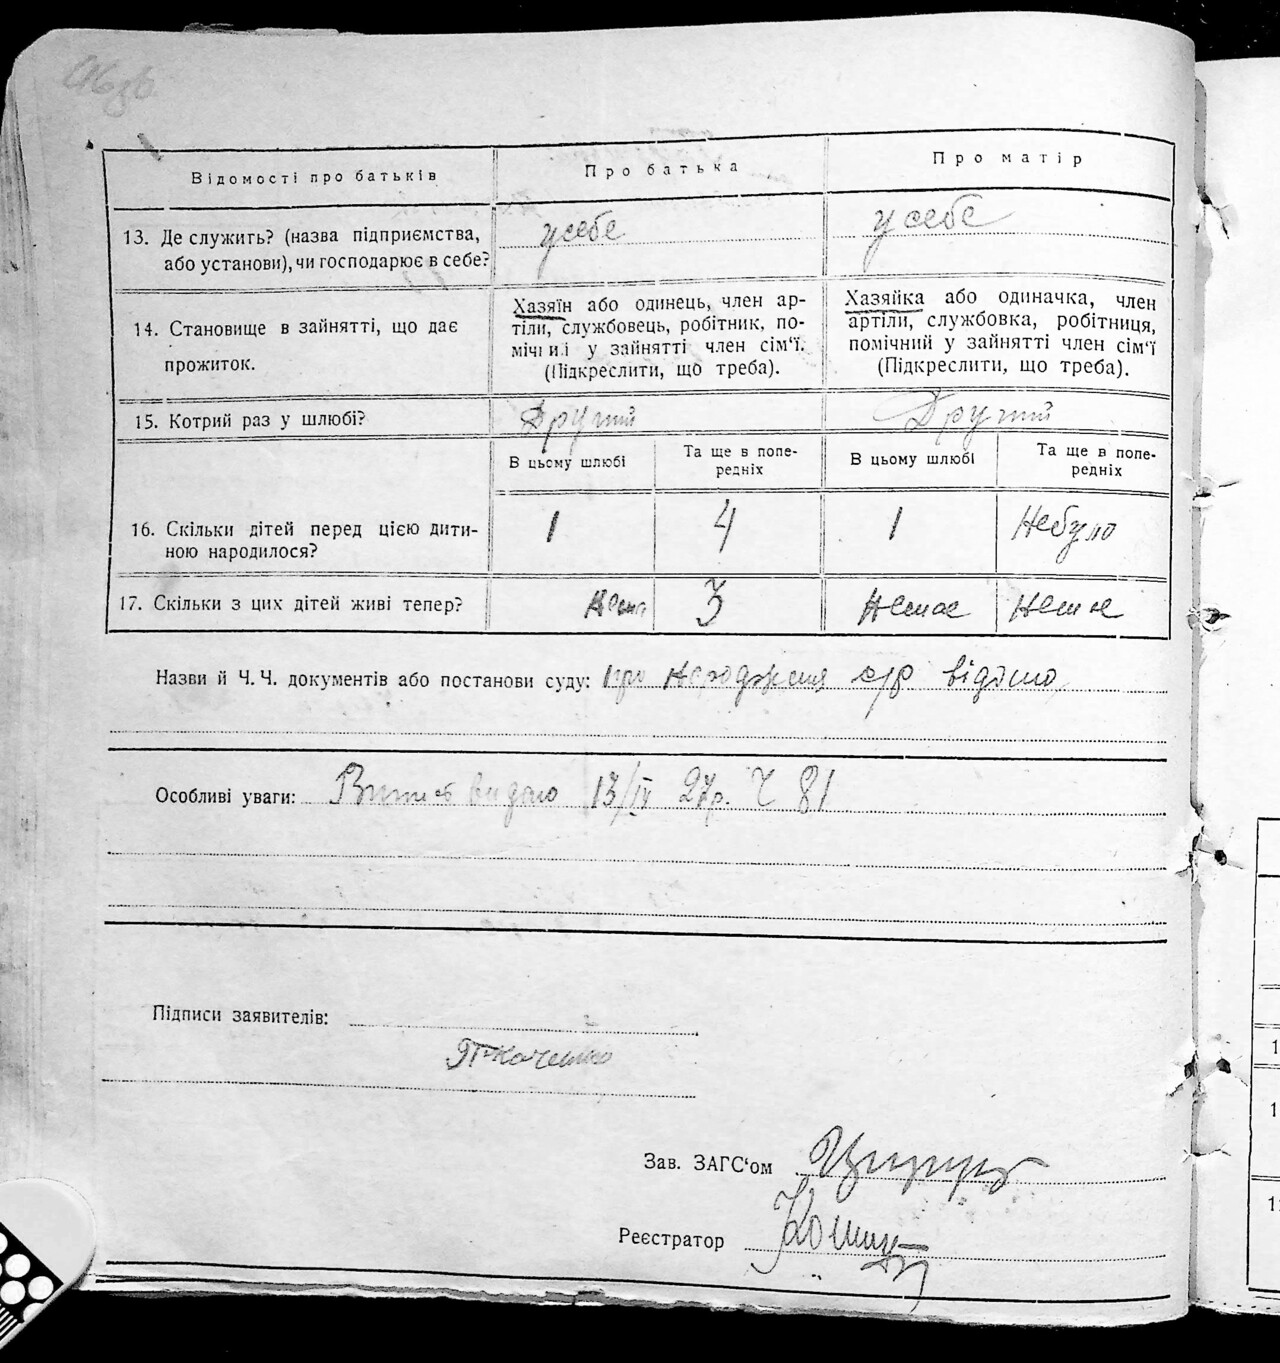 Відомості про батьків
Про батька
Про матір
13. Де служить? (назва підприємства,
або установи), чи господарює в себе?
у себе
у себе
14. Становище в зайнятті, що дає
прожиток.
Хазяїн або одинець, член ар-
тіли, службовець, робітник, по-
мічний у зайнятті член сім'ї.
(Підкреслити, що треба).
Хазяйка або одиначка, член
артіли, службовка, робітниця,
помічний у зайнятті член сім'ї
(Підкреслити, що треба).
15. Котрий раз у шлюбі?
Другий
Другий
В цьому шлюбі
Та ще в попе-
редніх
В цьому шлюбі
Та ще в попе-
редніх
16. Скільки дітей перед цією дити-
ною народилося?
1
4
1
Небуло
17. Скільки з цих дітей живі тепер?
Нема
3
Немає
Немає
Назви й Ч. Ч. документів або постанови суду: про народження с/р відомо
Особливі уваги: Витяг видано 13/IV 27р. Ч 81
Підписи заявителів:
Ткаченко
Зав. ЗАГС'ом
Реєстратор